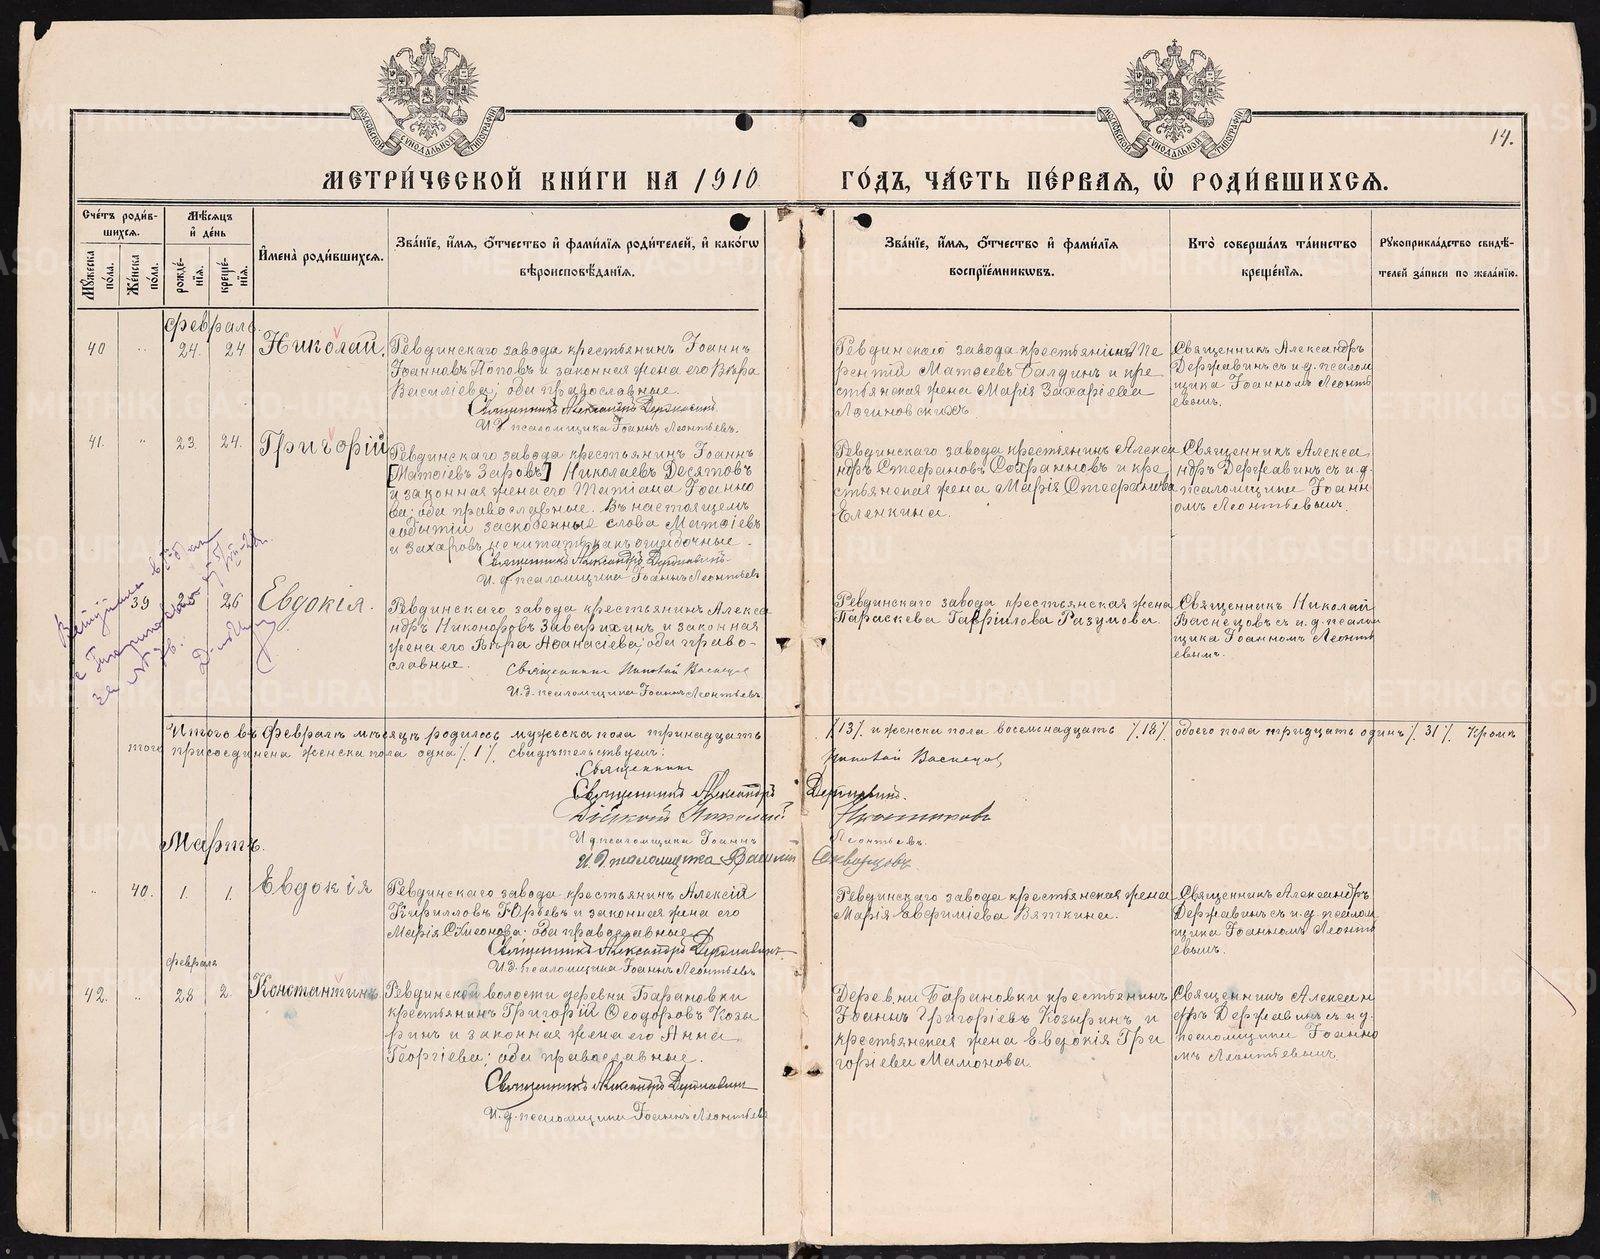 14.
МЕТРИЧЕСКОЙ КНИГИ НА 1910 ГОДЪ, ЧАСТЬ ПЕРВАЯ, Ѡ РОДИВШИХСЯ.
МОСКОВСКОЙ СУНОДАЛЬНОЙ ТИПОГРАФІИ
МОСКОВСКОЙ СУНОДАЛЬНОЙ ТИПОГРАФІИ
Счетъ родившихся.
Мужеска пола.
Женска пола.
Мѣсяцъ и день
рожденія.
крещенія.
Имена родившихся.
Званіе, имя, отчество и фамилія родителей, и какогѡ вѣроисповѣданія.
Званіе, имя, отчество и фамилія воспріемникѡвъ.
Кто совершалъ таинство крещенія.
Рукоприкладство свидѣтелей записи по желанію.
Февраль.
40 " 24. 24 Николай.
Ревдинскаго завода крестьянинъ Іоаннъ
Іоанновъ Поповъ и законная жена его Вѣра
Васильева; оба православные.
Священникъ Александръ Державинъ.
И. д. псаломщика Іоаннъ Леонтьевъ.
Ревдинскаго завода крестьянинъ Те
рентій Матвеевъ Балдинъ и кре
стьянская жена Марія Захаріева
Логиновскихъ.
Священникъ Александръ
Державинъ съ и. д. псалом
щика Іоанномъ Леонть
евымъ.
41. " 23. 24. Григорій
Ревдинскаго завода крестьянинъ Іоаннъ
[Матѳіевъ Заровъ] Николаевъ Десятовъ
и законная жена его Татіана Іоанно
ва; оба православные. Въ настоящемъ
событіи заскобенные слова Матѳіевъ
и Захаровъ не читать какъ ошибочные.
Священникъ Александръ Державинъ
И. д. псаломщика Іоаннъ Леонтьевъ
Ревдинскаго завода крестьянинъ Алекса
ндръ Стефановъ Софроновъ и кре
стьянская жена Марія Стефанова
Еленкина.
Священникъ Алекса
ндръ Державинъ съ и. д.
псаломщика Іоанн
омъ Леонтьевымъ.
39 26 Евдокія.
Ревдинскаго завода крестьянинъ Алекса
ндръ Никоноровъ Заверихинъ и законная
жена его Вѣра Аѳанасіева; оба право-
славные.
Священникъ Николай Васнецов
И. д. псаломщика Іоаннъ Леонтьевъ
Ревдинскаго завода крестьянская жена
Параскева Гавріилова Разумова.
Священникъ Николай
Васнецовъ съ и. д. псалом
щика Іоанномъ Леонть
евымъ.
Итого въ Февралѣ мѣсяцѣ родилось мужеска пола тринадцать /13/. и женска пола восемнадцать /18/. обоего пола тридцать одинъ /31/. Кромѣ
того присоединена женска пола одна /1/. свидѣтельствуемъ:
Священникъ Николай Васнецов
Священникъ Александръ Державинъ.
И. д. псаломщика Іоаннъ Леонтьевъ.
И. д. псаломщика Василій Скворцовъ.
Мартъ.
" 40. 1. 1. Евдокія
Ревдинскаго завода крестьянинъ Алексій
Кирилловъ Юрьевъ и законная жена его
Марія Симеонова; оба православные.
Священникъ Александръ Державинъ
И. д. псаломщика Іоаннъ Леонтьевъ
Ревдинскаго завода крестьянская жена
Марія Евфиміева Вяткина.
Священникъ Александръ
Державинъ съ и. д. псалом
щика Іоанномъ Леонть
евымъ.
февраля
42. " 28 2. Константинъ
Ревдинской волости деревни Барановки
крестьянинъ Григорій Ѳеодоровъ Козы
ринъ и законная жена его Анна
Георгіева; оба православные.
Священникъ Александръ Державинъ
И. д. псаломщика Іоаннъ Леонтьевъ
Деревни Барановки крестьянинъ
Іоаннъ Григоріевъ Козыринъ и
крестьянская жена Евдокія Гри
горіева Мамонова.
Священникъ Алексан
дръ Державинъ съ и. д.
псаломщика Іоанно
мъ Леонтьевымъ.
METRIKI.GASO-URAL.RU